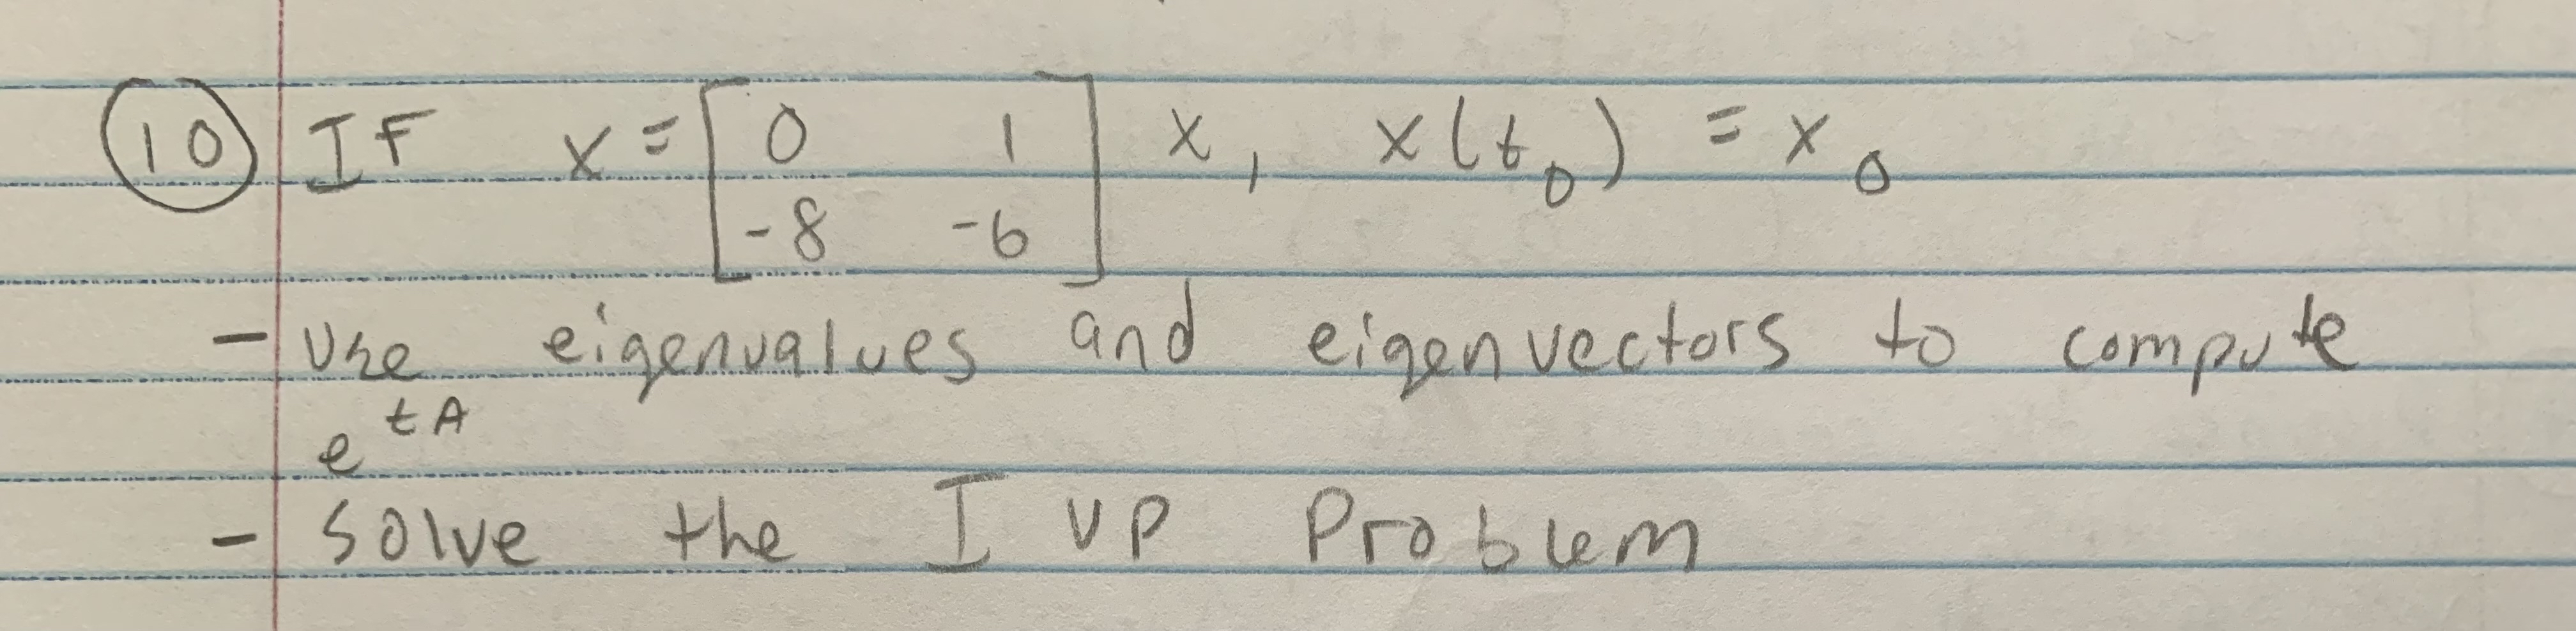 10 IF x = [0 1] x, x(t0) = x0
[-8 -6]
- Use eigenvalues and eigenvectors to compute
e^tA
- Solve the IVP Problem